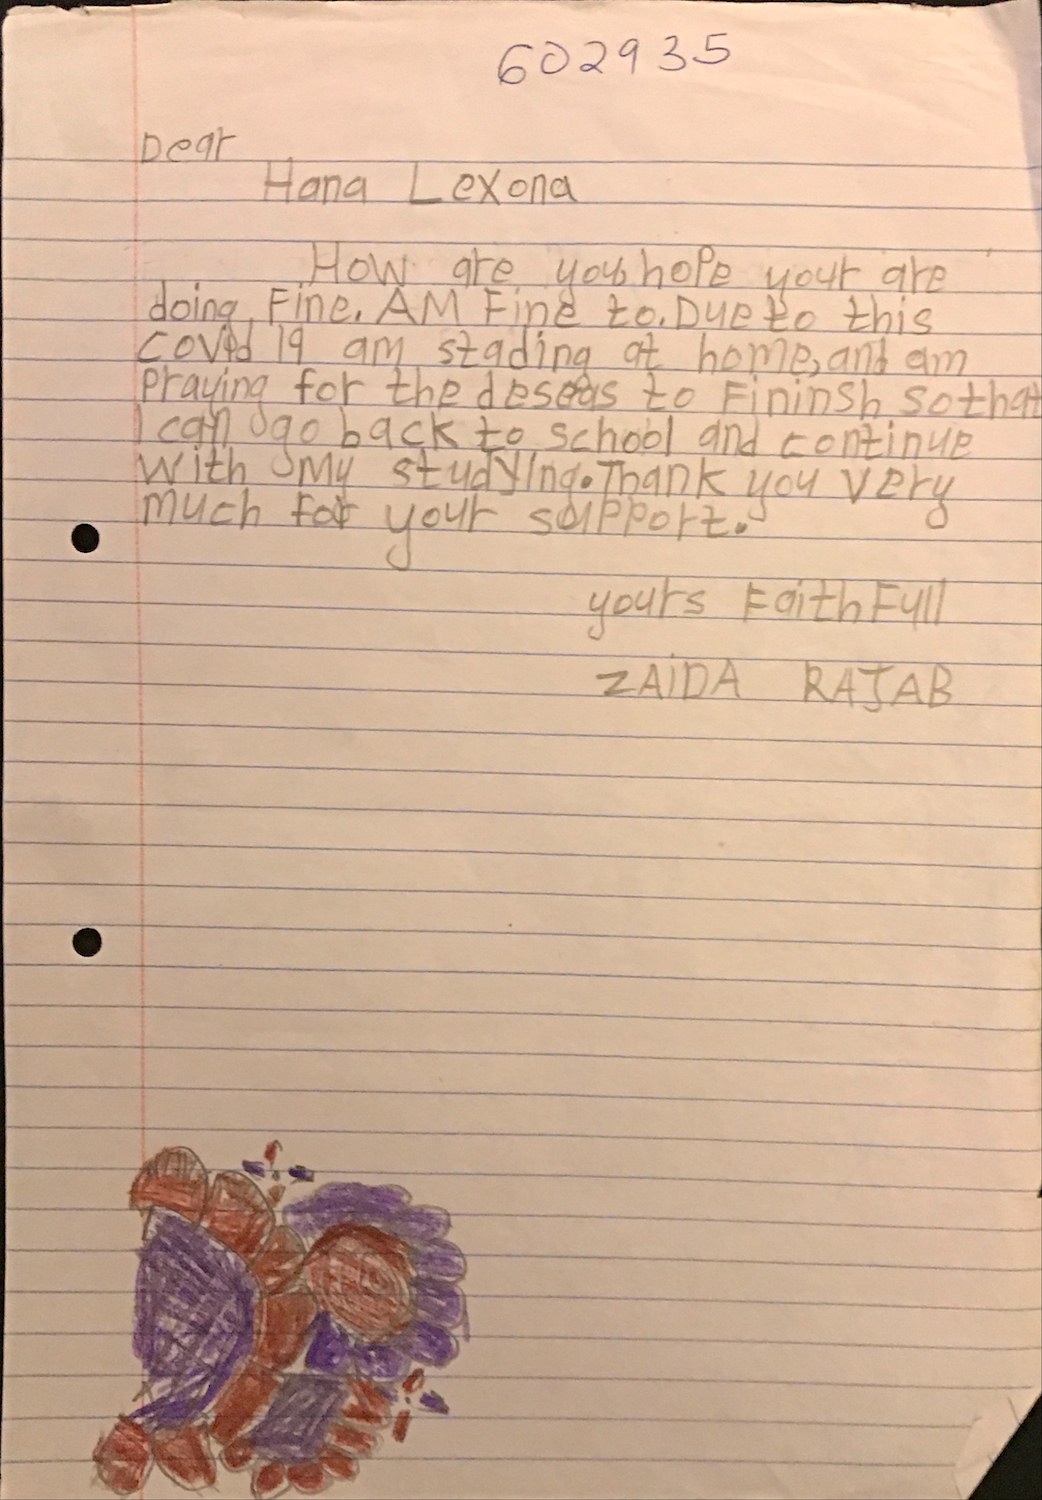 602935
Dear
Hana Lexona
How are you hope your are
doing Fine. AM Fine to. Due to this
covid 19 am stading at home, and am
praying for the deseas to Fininsh so that
I can go back to school and continue
with my studying. Thank you very
much for your support.
yours FaithFull
ZAiDA RAJAB